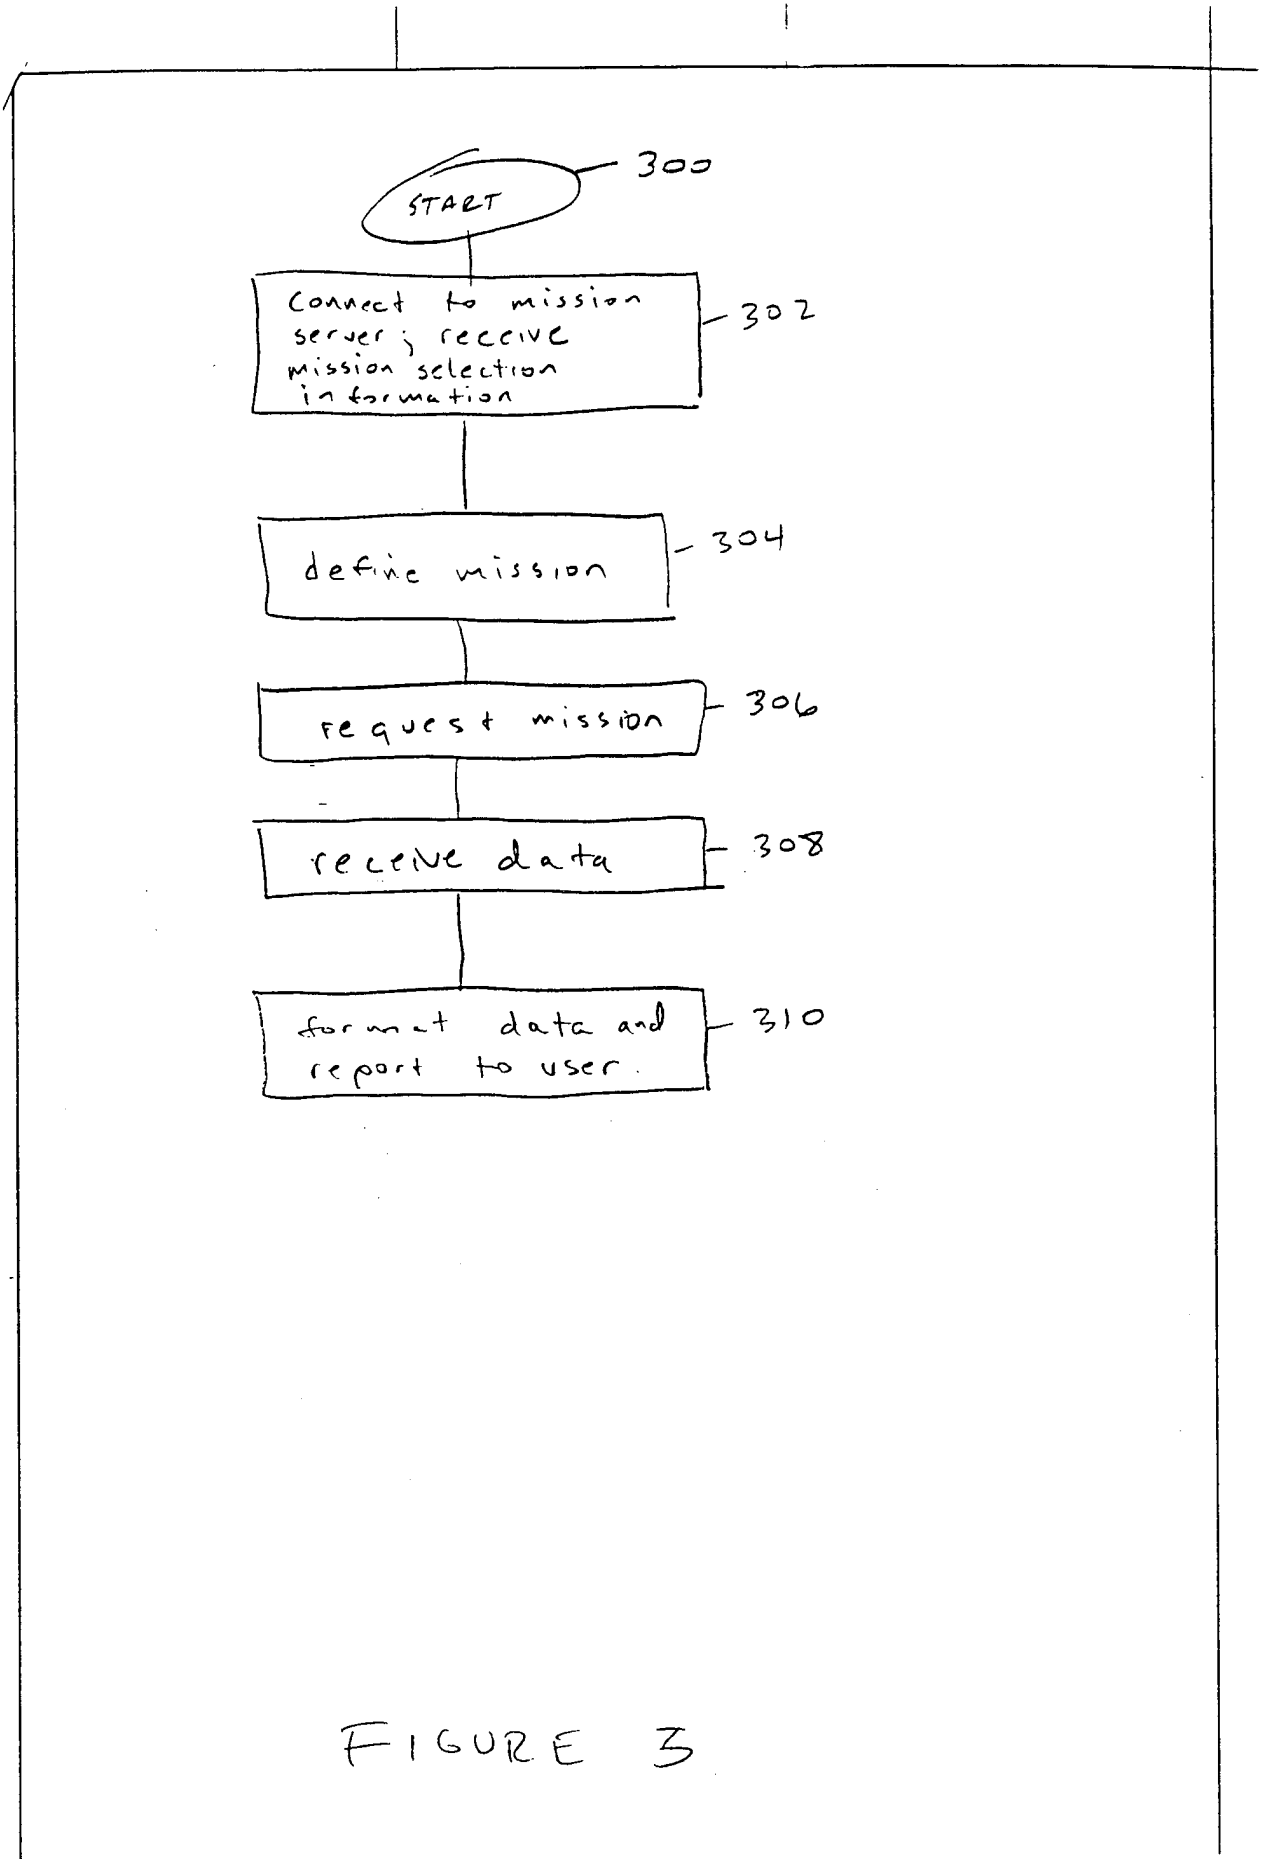 300
START
connect to mission
server; receive
mission selection
information
302
304
define mission
306
request mission
308
receive data
310
format data and
report to user.
FIGURE 3